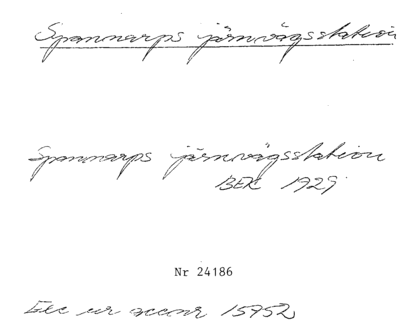 Spannarps järnvägsstation
Spannarps järnvägsstation
BEK 1929
Nr 24186
ur accnr 15752